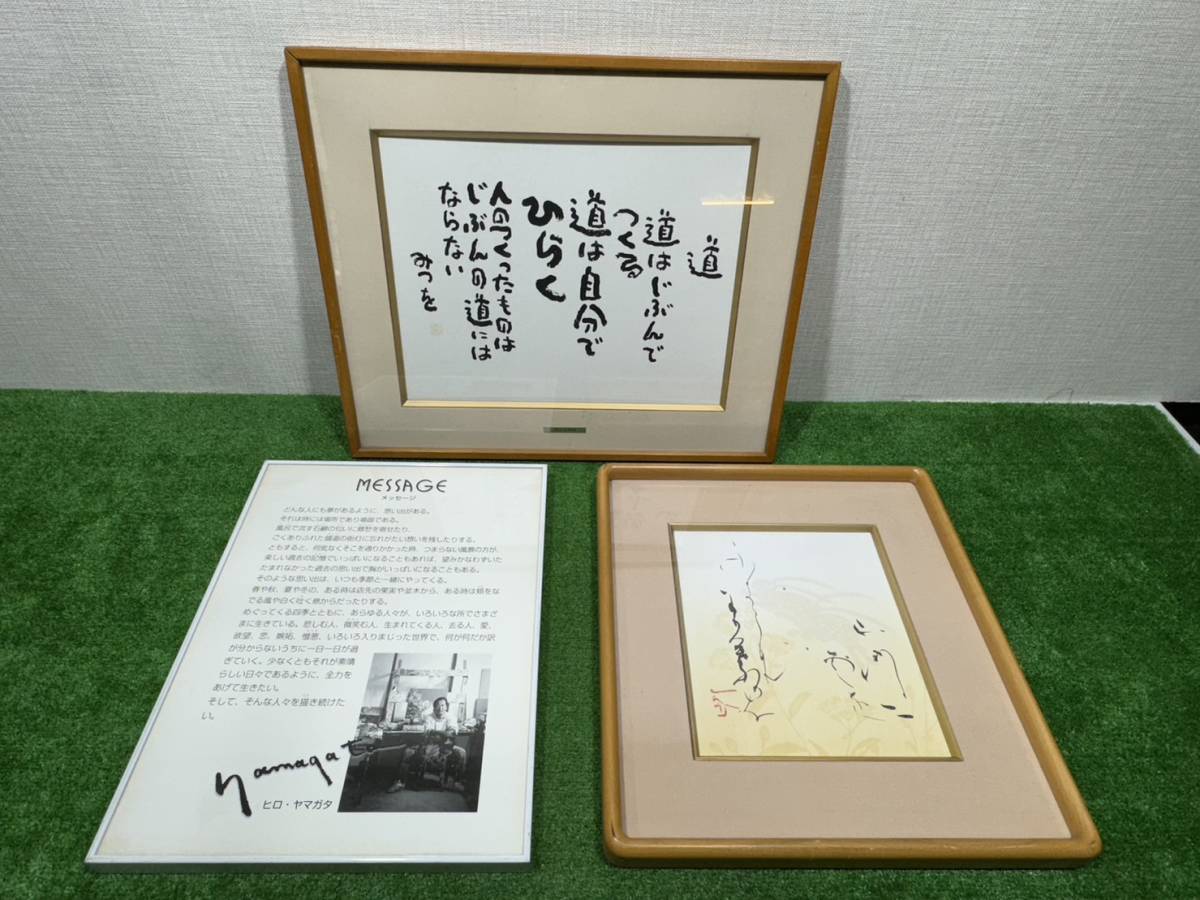 道
道はじぶんで
つくる
道は自分で
ひらく
人のつくったものは
じぶんの道には
ならない
みつを
MESSAGE
メッセージ
どんな人にも夢があるように、思い出がある。
それは時には場所であり場面である。
風呂で流す石鹸の匂いに郷愁を寄せたり、
ごくありふれた舗道の街灯に忘れがたい想いを残したりする。
ともすると、何気なくそこを通りかかった時、つまらない風景の方が、
楽しい過去の記憶でいっぱいになることもあれば、望みかなわずいた
たまれなかった過去の思い出で胸がいっぱいになることもある。
そのような思い出は、いつも季節と一緒にやってくる。
春や秋、夏や冬の、ある時は店先の果実や並木から、ある時は頬をな
でる風や白く吐く息からだったりする。
めぐってくる四季とともに、あらゆる人々が、いろいろな所でさまざ
まに生きている。悲しむ人、微笑む人、生まれてくる人、去る人、愛、
欲望、恋、嫉妬、憎悪、いろいろ入りまじった世界で、何が何だか訳
が分からないうちに一日一日が過
ぎていく。少なくともそれが素晴
らしい日々であるように、全力を
あげて生きたい。
そして、そんな人々を描き続けた
い。
Yamagat
ヒロ・ヤマガタ